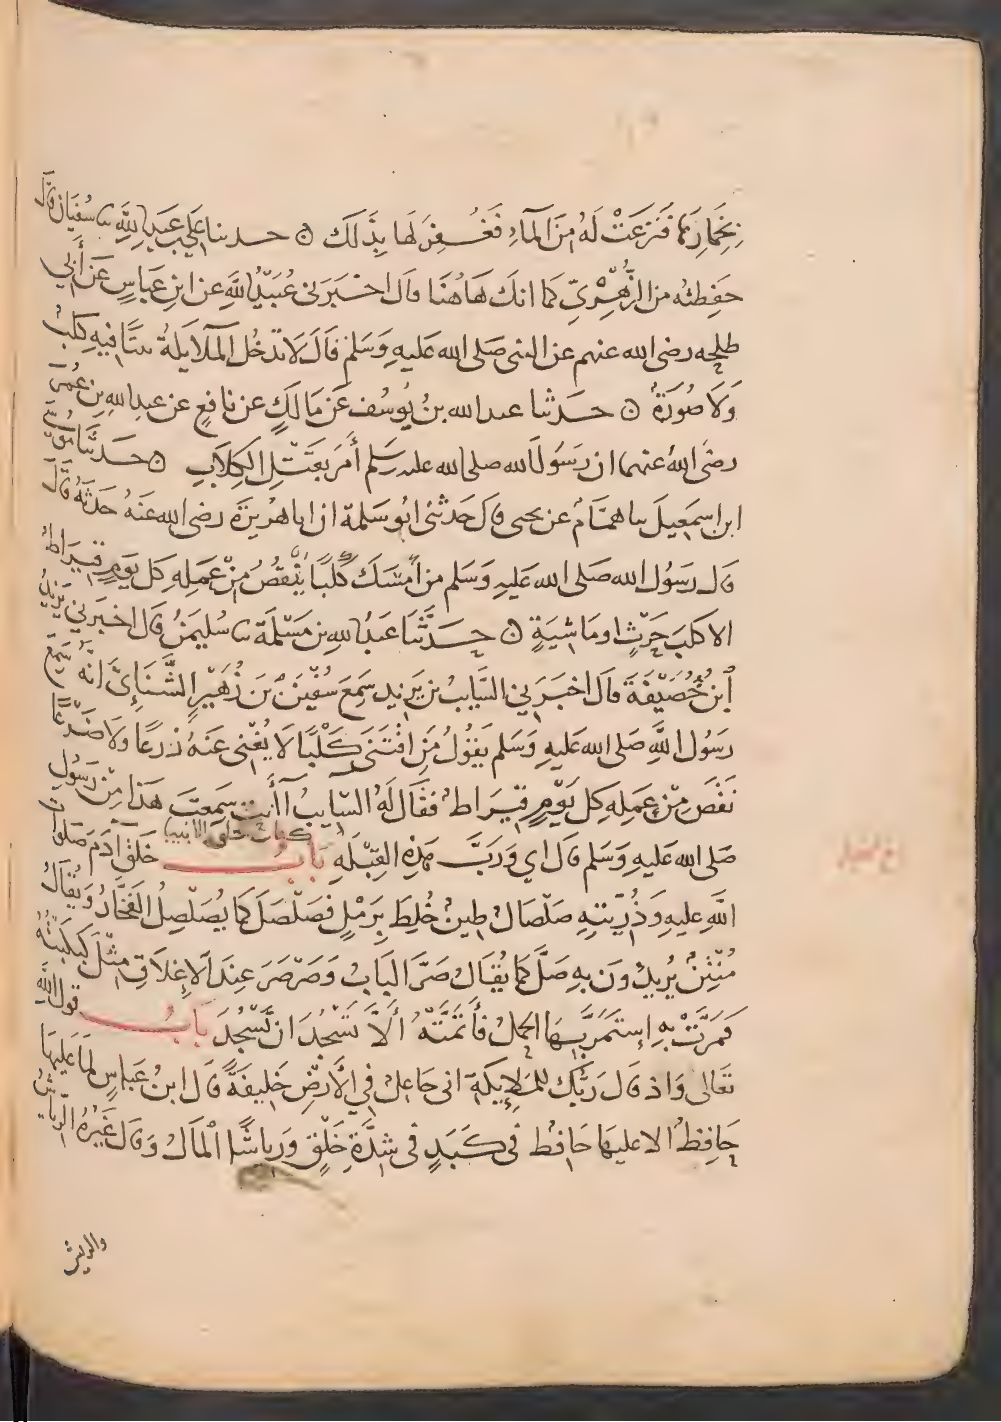 بِخِمَارِهَا فَنَزَعَتْ لَهُ مِنَ الْمَاءِ فَغُفِرَ لَهَا بِذَلِكَ ۞ حدثنا علي بن عبد الله ثنا سُفْيَان قَالَ
حفظته من الزُّهْرِيِّ كما انك هَاهُنَا قال اخْبَرَنى عُبَيْدُ اللَّهِ عن ابن عَبَاسٍ عَن أَبى
طلحه رضى الله عنهم عن النبى صَلى الله عَليهِ وَسَلم قَالَ لَا تَدْخُل الْمَلَايِكَةُ بَيْتًا فيهِ كلْبٌ
وَلَا صُورَةٌ ۞ حَدثنا عبد الله بنُ يُوسُف عَن مَالِكٍ عن نافعٍ عن عبد الله بن عُمَر
رضى الله عنهما ان رَسُولَ الله صلى الله عليه وسلم أَمَرَ بقَتْلِ الكِلَابِ ۞ حَدثَنَا مُوسَى
ابن اسمَعِيلَ ثنا همَّامٌ عن يحيى قال حَدثنى ابُو سَلَمة ان ابا هُرَيرَةَ رضى الله عَنهُ حَدثَهُ قَالَ
قال رسُول الله صَلى الله عَليهِ وَسَلم من امْسَك كَلْبًا يَنْقُصُ مِنْ عَمَلِهِ كل يَوْمٍ قِيرَاطٌ
الا كلبَ حَرْثٍ او مَاشِيَةٍ ۞ حَدَّثَنَا عَبدُ الله بن مَسْلَمَة ثنا سُلَيمٰنُ قال اخبَرَنى يَزِيدُ
ابْنُ خُصَيْفَةَ قال اخبَرَنِي السَّايبُ بن يَزِيد سَمِعَ سُفْيٰنَ بْنَ زُهَيْرٍ الشَّنَائِيَّ انَّهُ سَمِعَ
رَسُول اللَّهِ صَلى الله عَليهِ وَسَلم يقُولُ مَنِ اقْتَنَى كَلْبًا لا يُغْنِى عَنْهُ زَرعًا ولا ضَرْعًا
نَقَصَ مِنْ عَمَلِهِ كل يَوْمٍ قِيرَاطٌ فَقَال لَهُ السَّايبُ أَأَنتَ سَمِعتَ هَذا مِنْ رَسُول
كتاب خلق الانبيا
صَلى الله عليهِ وَسَلم قال اي وَرَبِّ هَذِهِ القِبْلَةِ بَابُ خَلْقِ آدَمَ صَلَوَاتُ
اللَّهِ عليهِ وَذُرِّيَّتِهِ صَلْصَالٌ طِينٌ خُلِطَ بِرَمْلٍ فَصَلْصَلَ كما يُصَلْصِلُ الفَخَّارُ وَيُقَالُ
مُنْتِنٌ يُرِيدُونَ بِهِ صَلَّ كما يُقَالُ صَرَّ البَابُ وَصَرْصَرَ عِندَ الإِغلَاقِ مِثْلُ كَبْكَبْتُهُ
فَمَرَّتْ بِهِ إِستَمَرَّ بِهَا الحملُ فَأَتَمَّتْهُ أَلَّا تَسْجُدَ ان تَسْجُدَ بَابُ قول الله
تَعَالى وَاذ قال رَبُّك للمَلائِكَةِ انى جَاعِلٌ فِي الأَرْضِ خَلِيفَةً قال ابنُ عَباسٍ لَمَّا عَليهَا
حَافِظٌ الا عليهَا حَافِظ فى كَبَدٍ فى شِدَّةِ خَلْقٍ وَرِياشًا الْمَالُ وَقال غَيْرُهُ الرِّيَاشُ
والريش